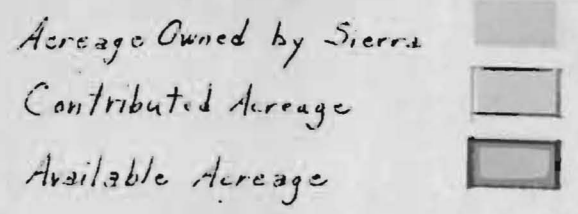 Acreage Owned by Sierra
Contributed Acreage
Available Acreage